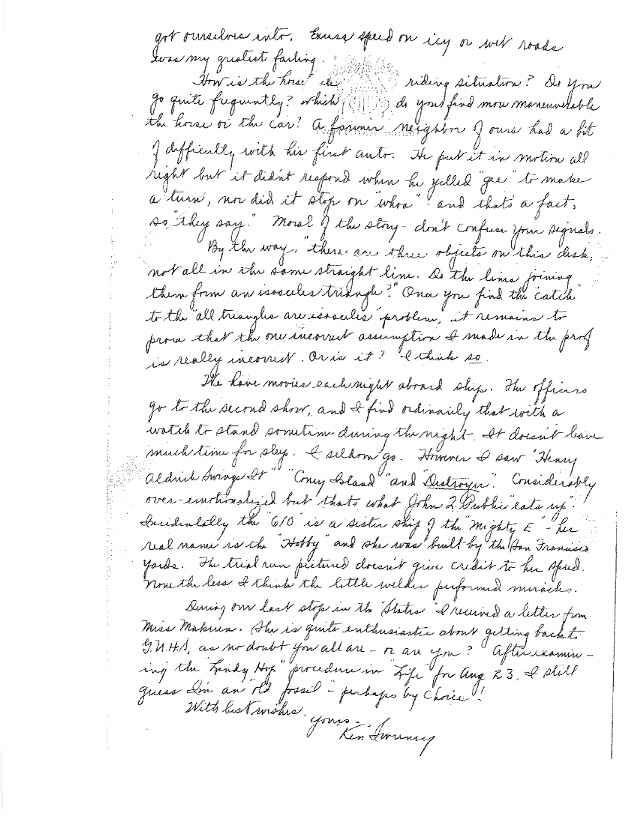 got ourselves into. Excess speed on icy or wet roads
was my greatest failing.
How is the horse riding situation? Do you
go quite frequently? which do you find more maneuverable
the horse or the car? A former neighbor of ours had a bit
of difficulty with his first auto. He put it in motion all
right but it didn't respond when he yelled "gee" to make
a turn, nor did it stop on "whoa" and that's a fact,
so "they say." Moral of the story - don't confuse your signals.
By the way, "there are three objects on this desk,
not all in the same straight line. Do the lines joining
them form an isosceles triangle?" Once you find the "catch"
to the "all triangles are isosceles" problem, it remains to
prove that the one incorrect assumption I made in the proof
is really incorrect. Or is it? I think so.
We have movies each night aboard ship. The officers
go to the second show, and I find ordinarily that with a
watch to stand sometime during the night, it doesn't leave
much time for sleep. I seldom go. However I saw "Henry
Aldrich Swings It" "Coney Island" and "Destroyer". Considerably
over-emotionalized but that's what John Q. Public "eats up".
Incidentally the "610" is a sister ship of the "Mighty E" - her
real name is the "Hobby" and she was built by the San Francisco
yards. The trial run pictured doesn't give credit to her speed.
None the less I think the little welder performed miracles.
During our last stop in the "States" I received a letter from
Miss . She is quite enthusiastic about getting back to
G.N.H.S, as no doubt you all are - or are you? After examin-
ing the "Lindy Hop" procedure in "Life" for Aug 23. I still
guess I'm an "old fossil" - perhaps by choice!
With best wishes.
Yours -
Ken